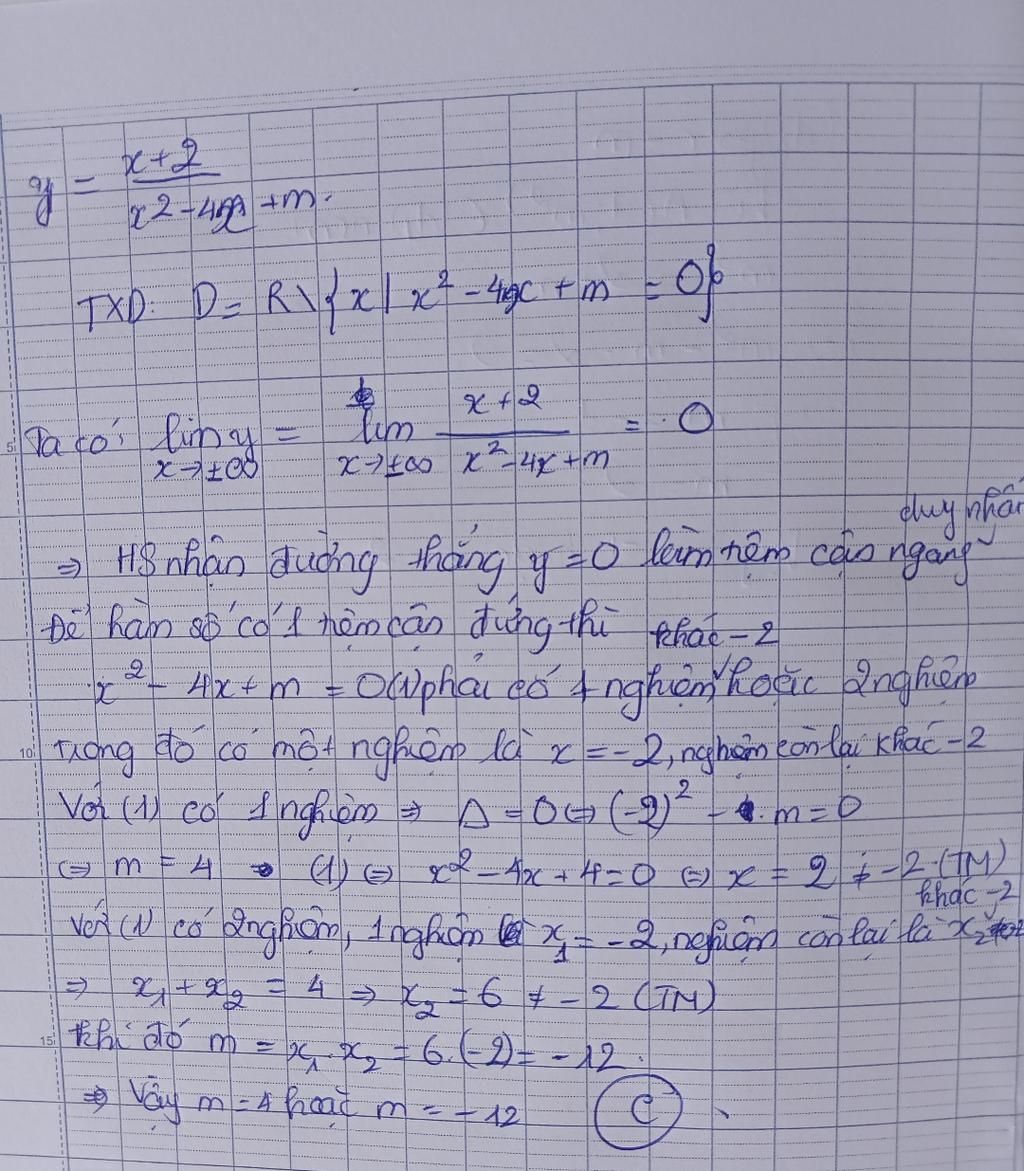 y = \frac{x+2}{x2-4x+m}.
TXD: D = R \ {x | x² - 4x + m = 0}
Ta có: lim_{x→±∞} y = lim_{x→±∞} \frac{x+2}{x²-4x+m} = 0
duy nhất
⇒ HS nhận đường thẳng y = 0 làm tiệm cận ngang
Để hàm số có 1 tiệm cận đứng thì khác -2
x² - 4x + m = 0 (1) phải có 1 nghiệm hoặc 2 nghiệm
trong đó có một nghiệm là x = -2, nghiệm còn lại khác -2
Với (1) có 1 nghiệm ⇒ Δ = 0 ⇔ (-2)² - 1. m = 0
⇔ m = 4 → (1) ⇔ x² - 4x + 4 = 0 ⇔ x = 2 ≠ -2 (TM)
khác -2
Với (1) có 2 nghiệm, 1 nghiệm là x₁ = -2, nghiệm còn lại là x₂
⇒ x₁ + x₂ = 4 ⇒ x₂ = 6 ≠ -2 (TM)
Khi đó m = x₁. x₂ = 6.(-2) = -12.
⇒ Vậy m = 4 hoặc m = -12 C